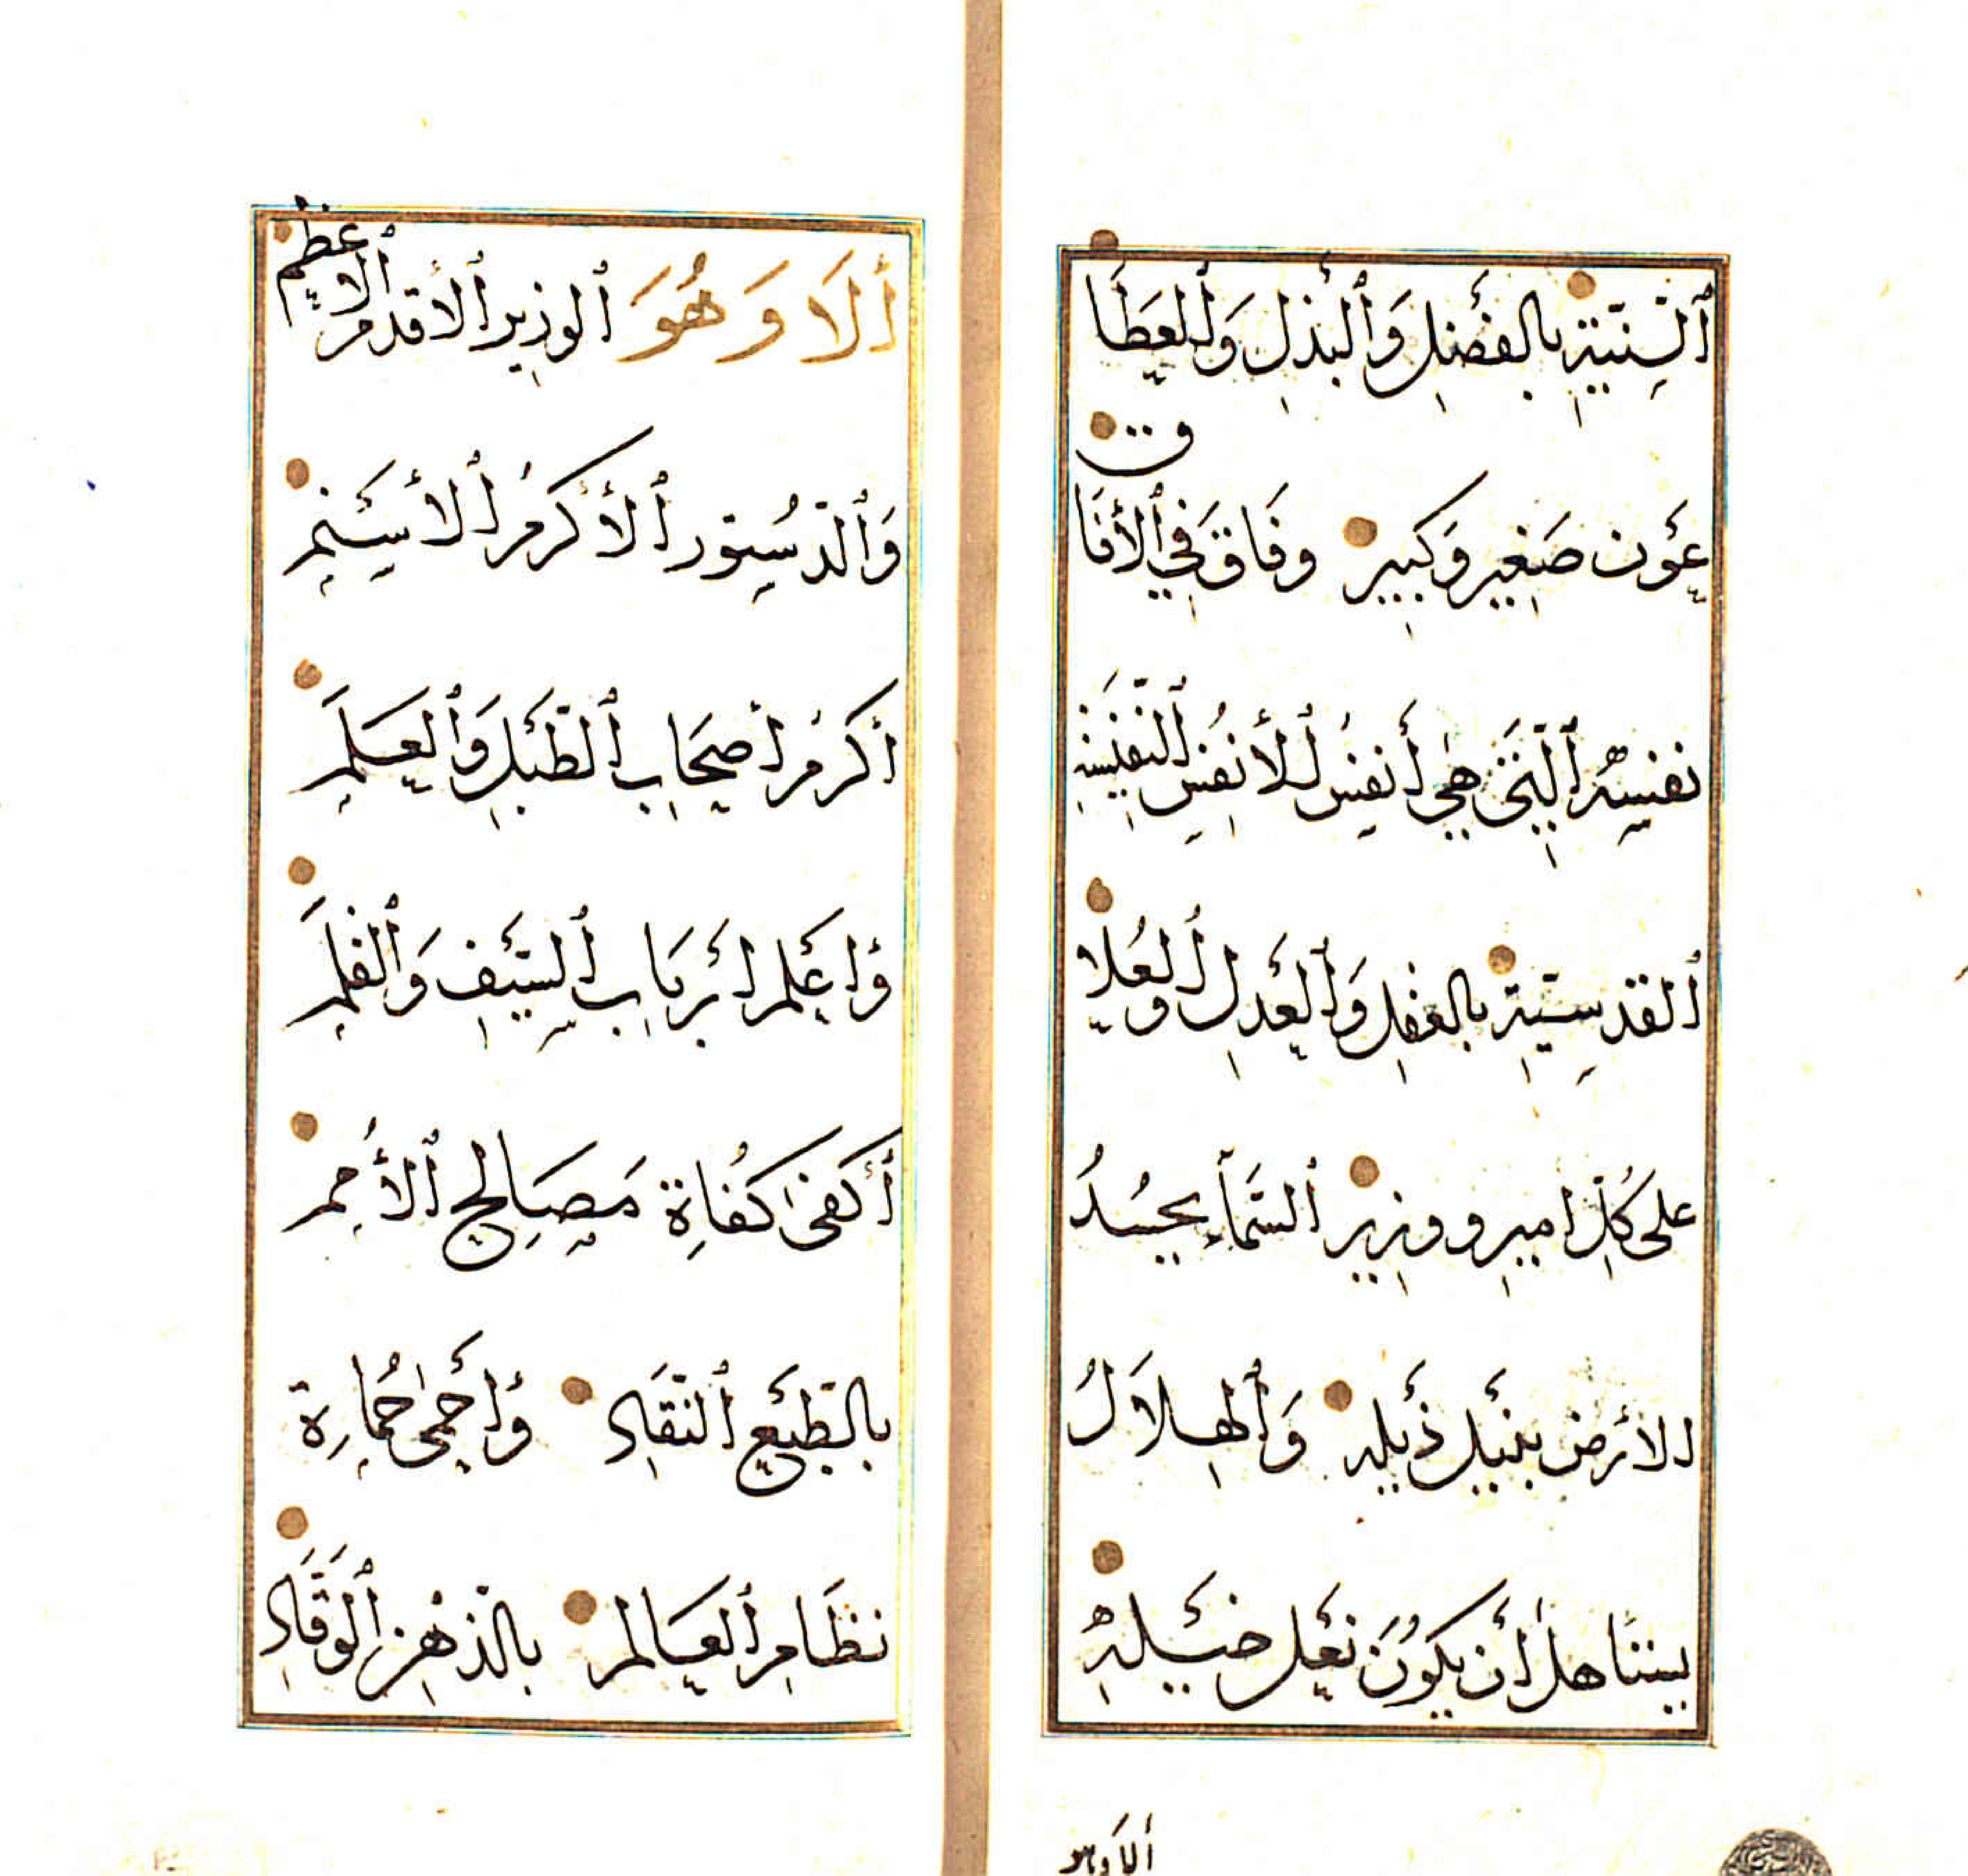 ٱلسَّنِيَّةِ بِالْفَضْلِ وَٱلْبَذْلِ وَٱلْعَطَا
عَوْن صَغِيرٍ وَكَبِيرٍ وفَاقَ فِي ٱلْأٓفَاق
نَفْسِهُ ٱلَّتِي هِيَ أَنْفَسُ ٱلْأَنْفُسِ ٱلنَّفِيسَةِ
ٱلْقُدْسِيَّةِ بِالْعَقْلِ وَٱلْعَدْلِ وَٱلْعُلَا
عَلَى كُلِّ اميرٍ ووزيرٍ ٱلسَّمَآءِ يحسُدُ
الْأَرْض بِنَيْلِ ذَيْلِهِ وَٱلْهِلَالُ
يتنَاهل أَنْ يَكُونَ نَعْل خَيْلِهِ
ألَا وهو
أَلَا وَهُوَ ٱلوزير ٱلْأَقْدَم ٱلْأَعْظَم
وَٱلدُّسْتُور ٱلْأَكْرَمُ ٱلْأَسْنَم
أَكْرَمُ أَصْحَابِ ٱلطَّبْلِ وَٱلْعَلَم
وَأَعْلَم أَرْبَابِ ٱلسَّيْفِ وَٱلْقَلَم
أَكْفَى كُفَاةِ مَصَالِحِ ٱلْأُمَم
بِالطَّبْعِ ٱلنَّقَّادِ وَأَحْمَى حُمَاة
نظَام ٱلْعَالَم بِالذِّهْنِ ٱلْوَقَّادِ